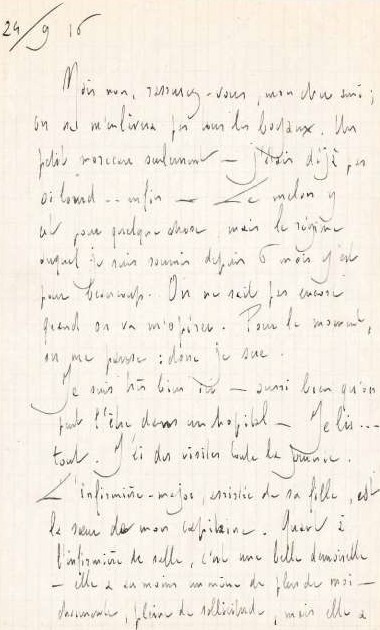 24/9 16
Mais non, rassurez-vous, mon cher ami ;
on ne m'enlèvera pas tous les boyaux. Un
petit morceau seulement — j'étais déjà pas
si lourd -- enfin — Le melon y
est pour quelque chose, mais le régime
auquel je suis soumis depuis 6 mois y est
pour beaucoup. On ne sait pas encore
quand on va m'opérer. Pour le moment,
on me panse : donc je suis.
Je suis très bien ici — aussi bien qu'on
peut l'être dans un hôpital — Je lis ...
tout. J'ai des visites toute la journée.
L'infirmière-major, assistée de sa fille, est
la sœur de mon capitaine. Quant à
l'infirmière de salle, c'est une belle demoiselle
— elle a au moins un mètre de plus que moi —
charmante, pleine de sollicitude, mais elle a